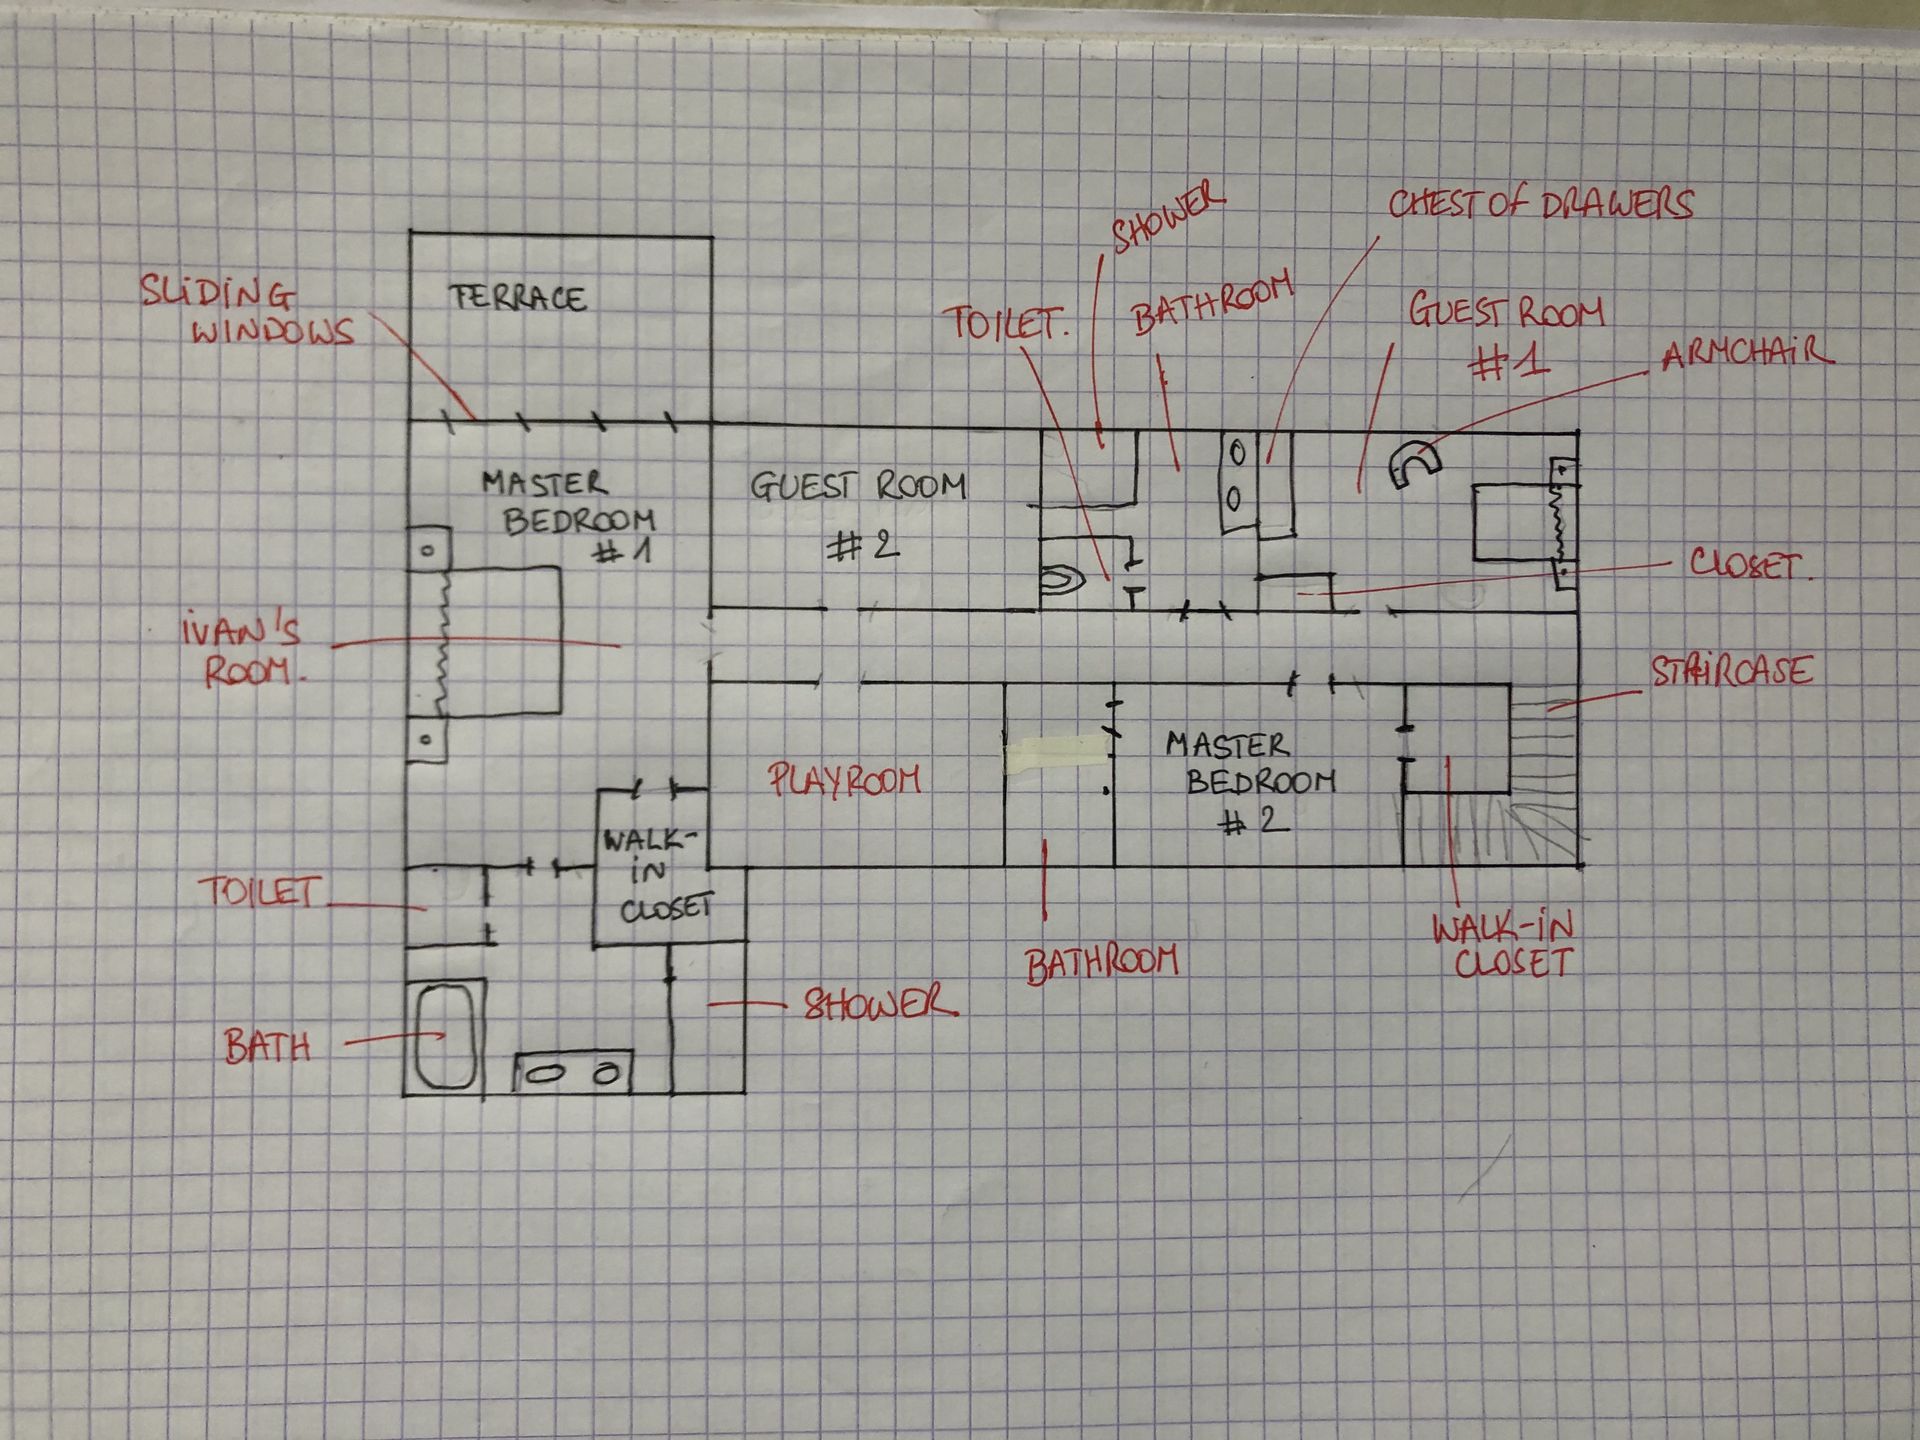 SHOWER
CHEST OF DRAWERS
SLIDING
WINDOWS
TERRACE
TOILET.
BATHROOM
GUEST ROOM
#1
ARMCHAIR
MASTER
BEDROOM
#1
GUEST ROOM
#2
CLOSET.
IVAN'S
ROOM.
STAIRCASE
PLAYROOM
MASTER
BEDROOM
#2
WALK-
IN
CLOSET
TOILET
BATHROOM
WALK-IN
CLOSET
BATH
SHOWER